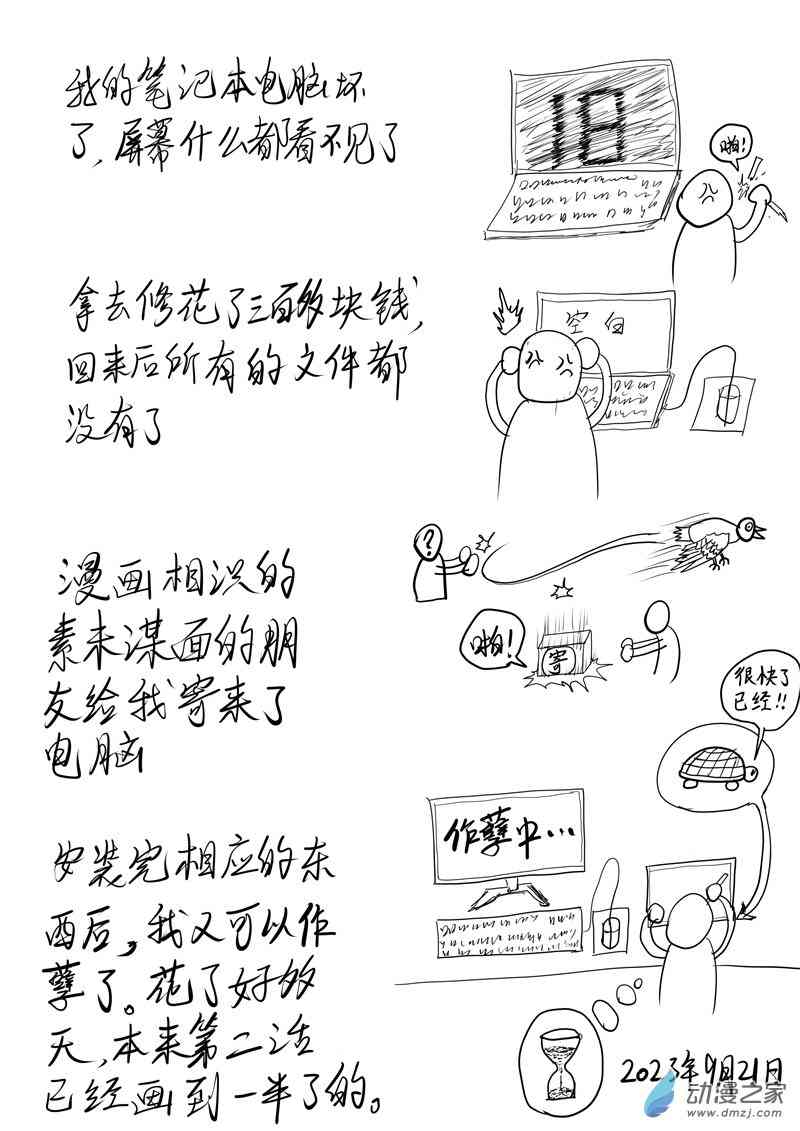 我的笔记本电脑坏
了,屏幕什么都看不见了
18
啪!
拿去修花了三百多块钱,
回来后所有的文件都
没有了
空白
漫画相识的
素未谋面的朋
友给我寄来了
电脑
?
啪!
寄
很快了
已经!!
安装完相应的东
西后,我又可以作
孽了。花了好多
天,本来第二话
已经画到一半了的。
作孽中...
2023年9月21日
动漫之家
www.dmzj.com